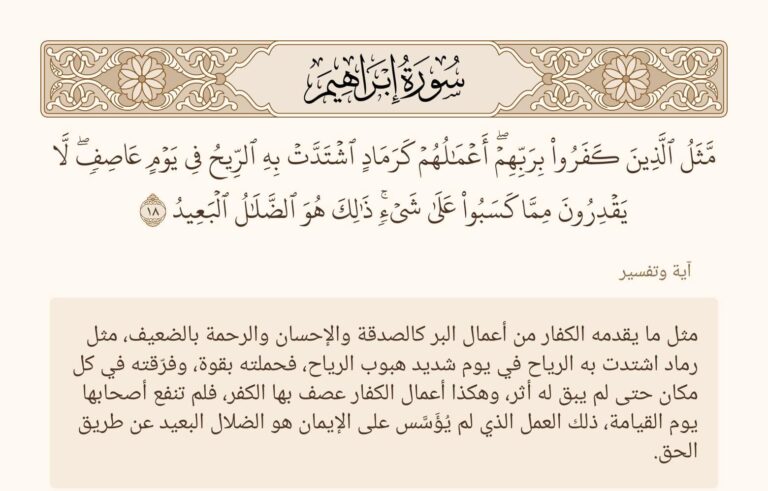 سُورَةُ إِبْرَاهِيمَ
مَّثَلُ ٱلَّذِينَ كَفَرُواْ بِرَبِّهِمۡۖ أَعۡمَٰلُهُمۡ كَرَمَادٍ ٱشۡتَدَّتۡ بِهِ ٱلرِّيحُ فِي يَوۡمٍ عَاصِفٖۖ لَّا
يَقۡدِرُونَ مِمَّا كَسَبُواْ عَلَىٰ شَيۡءٖۚ ذَٰلِكَ هُوَ ٱلضَّلَٰلُ ٱلۡبَعِيدُ ١٨
آية وتفسير
مثل ما يقدمه الكفار من أعمال البر كالصدقة والإحسان والرحمة بالضعيف، مثل
رماد اشتدت به الرياح في يوم شديد هبوب الرياح، فحملته بقوة، وفرّقته في كل
مكان حتى لم يبق له أثر، وهكذا أعمال الكفار عصف بها الكفر، فلم تنفع أصحابها
يوم القيامة، ذلك العمل الذي لم يُؤَسَّس على الإيمان هو الضلال البعيد عن طريق
الحق.